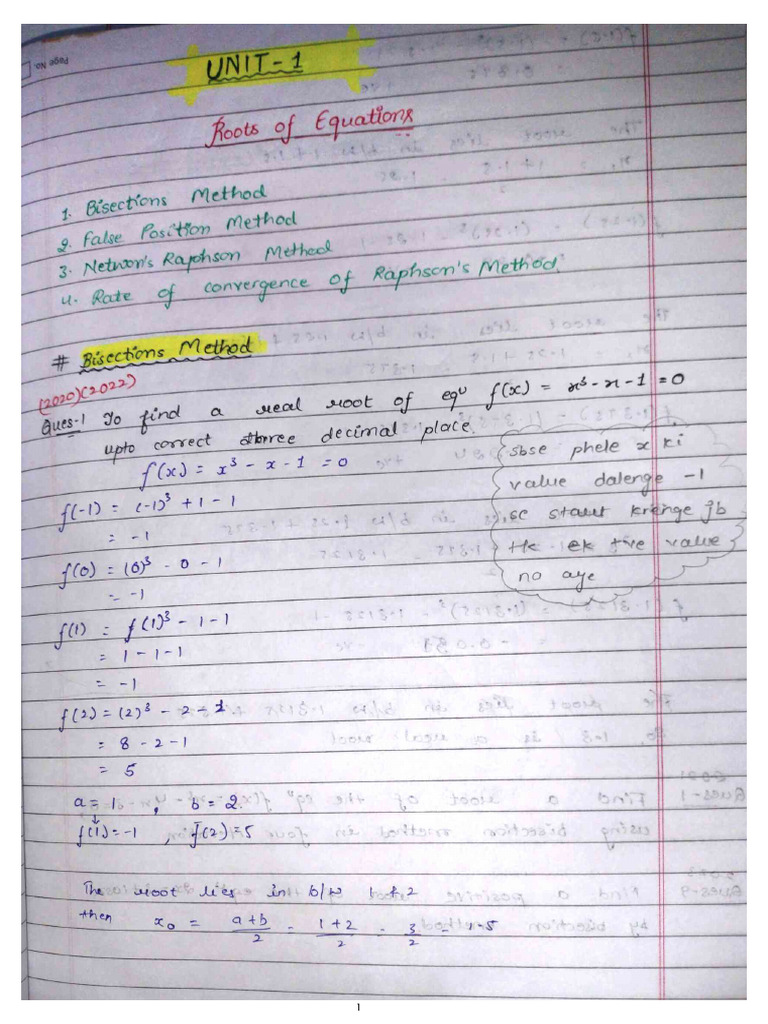 Page No.
UNIT-1
Roots of Equations
1. Bisections Method
2. False Position Method
3. Netwon's Raphson Method
4. Rate of convergence of Raphson's Method.
# Bisections Method
(2020)(2022)
Ques-1 To find a real root of equ f(x) = x³-x-1=0
upto correct three decimal place.
f(x) = x³ - x - 1 = 0
sbse phele x ki
value dalenge -1
se start krenge jb
tk ek +ve value
no aye
f(-1) = (-1)³ + 1 - 1
= -1
f(0) = (0)³ - 0 - 1
= -1
f(1) = f(1)³ - 1 - 1
= 1 - 1 - 1
= -1
f(2) = (2)³ - 2 - 1
= 8 - 2 - 1
= 5
a = 1 , b = 2
↓ ↓
f(1) = -1 , f(2) = 5
The root lies in b/w 1 & 2
then x₀ = a+b/2 = 1+2/2 = 3/2 = 1.5
1